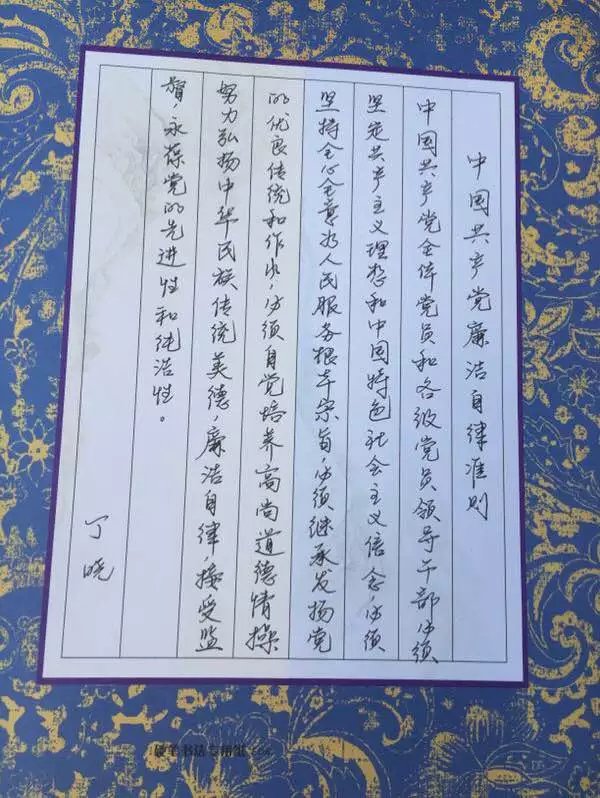 中国共产党廉洁自律准则
中国共产党全体党员和各级党员领导干部必须
坚定共产主义理想和中国特色社会主义信念，必须
坚持全心全意为人民服务根本宗旨，必须继承发扬党
的优良传统和作风，必须自觉培养高尚道德情操
努力弘扬中华民族传统美德，廉洁自律，接受监
督，永葆党的先进性和纯洁性。
丁晓
硬笔书法专用纸